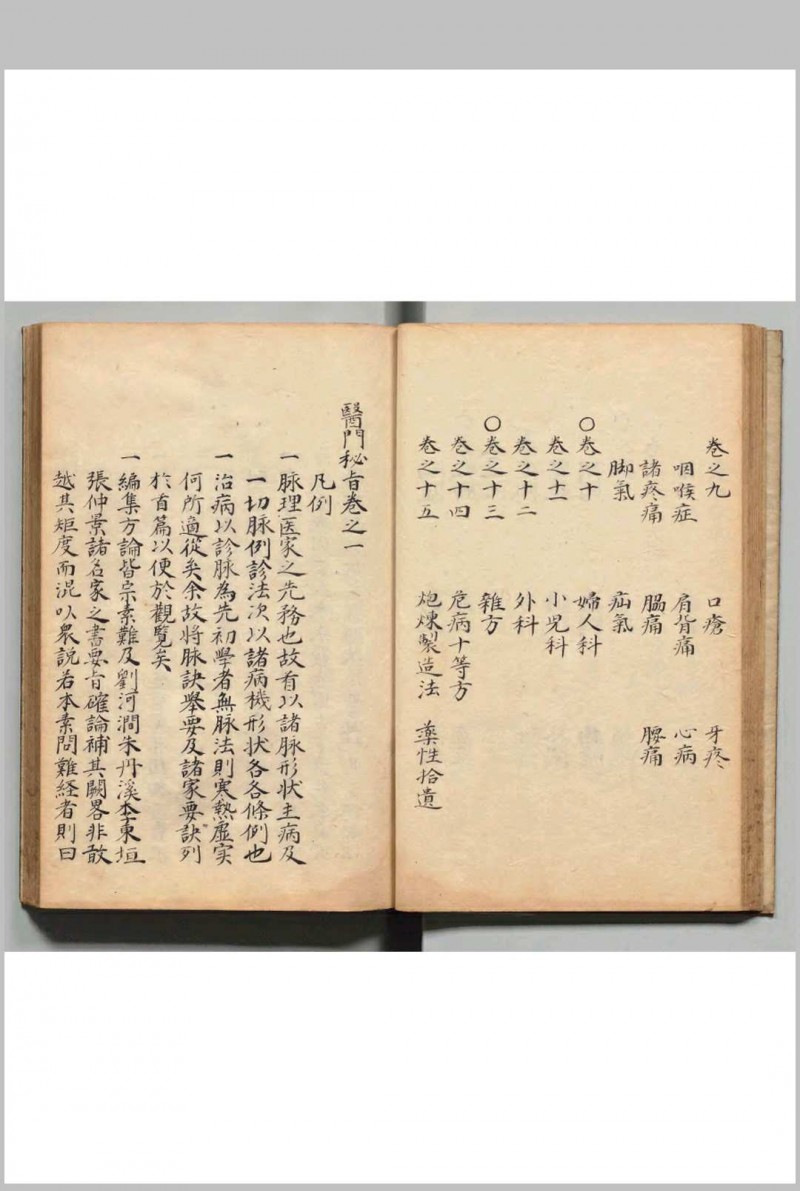 卷之九　口瘡　牙疼
咽喉症　肩背痛　心病
諸疼痛　腸痛　腰痛
脚氣　疝氣
○卷之十　婦人科
卷之十一　小児科
卷之十二　外科
○卷之十三　雜方
卷之十四　危病十等方
卷之十五　炮煉製造法　藥性拾遺
醫門秘旨卷之一
凡例
一脉理医家之先務也故有以諸脉形状主病及
一切脉例診法次以諸病機形状各各條例也
一治病以診脉為先初學者無脉法則寒熱虛实
何所適從矣余故將脉訣舉要及諸家要訣列
於首篇以便於觀覽矣
一編集方論皆宗素難及劉河澗朱丹溪李東垣
張仲景諸名家之書要旨確論補其闕畧非敢
越其矩度而泥以衆説若本素問難経者則曰